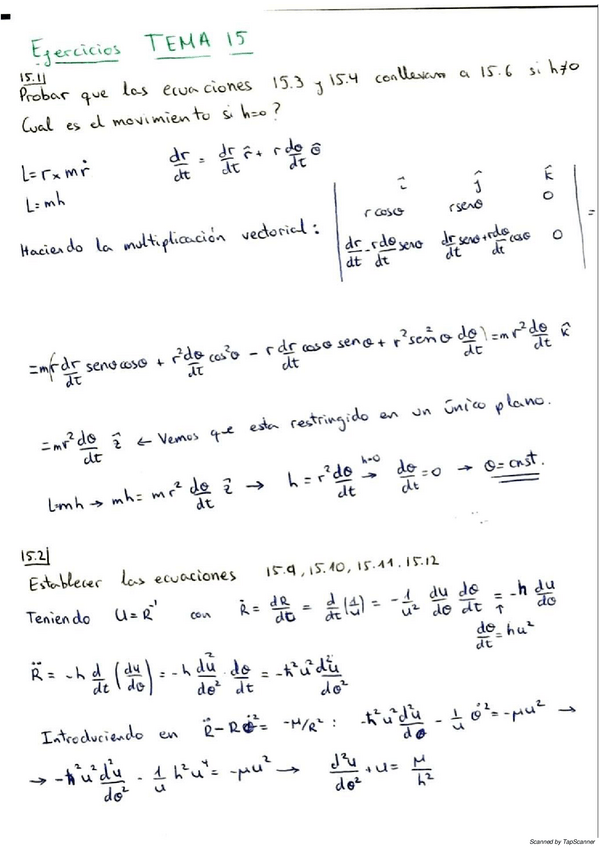 Ejercicios TEMA 15
15.1|
Probar que las ecuaciones 15.3 y 15.4 conllevan a 15.6 si h≠0
Cual es el movimiento si h=0?
L=r×mṙ dr/dt = dr/dt r̂ + r dθ/dt θ̂
L=mh
Haciendo la multiplicación vectorial: | î ĵ k̂ |
| r cosθ r senθ 0 | =
| dr/dt - r dθ/dt senθ dr/dt senθ + r dθ/dt cosθ 0 |
=m(r dr/dt senθ cosθ + r² dθ/dt cos²θ - r dr/dt cosθ senθ + r² sen²θ dθ/dt) = mr² dθ/dt k̂
=mr² dθ/dt ẑ ← Vemos que esta restringido en un único plano.
L=mh → mh = mr² dθ/dt ẑ → h = r² dθ/dt →(h=0) dθ/dt = 0 → θ = cnst.
15.2|
Establecer las ecuaciones 15.9, 15.10, 15.11, 15.12
Teniendo U=R⁻¹ con Ṙ = dR/dt = d/dt (1/u) = -1/u² du/dθ dθ/dt = -h du/dθ
↑
dθ/dt = hu²
R̈ = -h d/dt (du/dθ) = -h d²u/dθ² · dθ/dt = -h²u² d²u/dθ²
Introduciendo en R̈ - Rθ̇² = -μ/R² : -h²u² d²u/dθ - 1/u θ̇² = -μu² →
→ -h²u² d²u/dθ² - 1/u h²u⁴ = -μu² → d²u/dθ² + u = μ/h²
Scanned by TapScanner